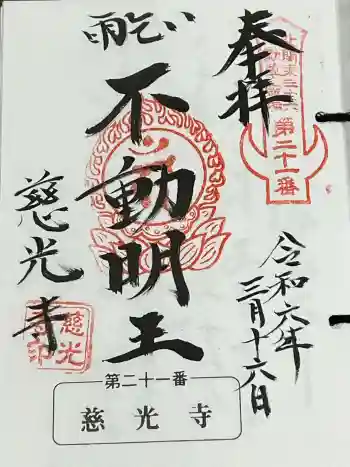 奉拝
第二十一番
雨乞い
不動明王
慈光寺
令和六年
三月十六日
慈光
寺印
第二十一番
慈光寺